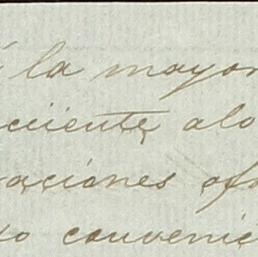 í la mayor
ciente alo
aciones ofr
o convenie